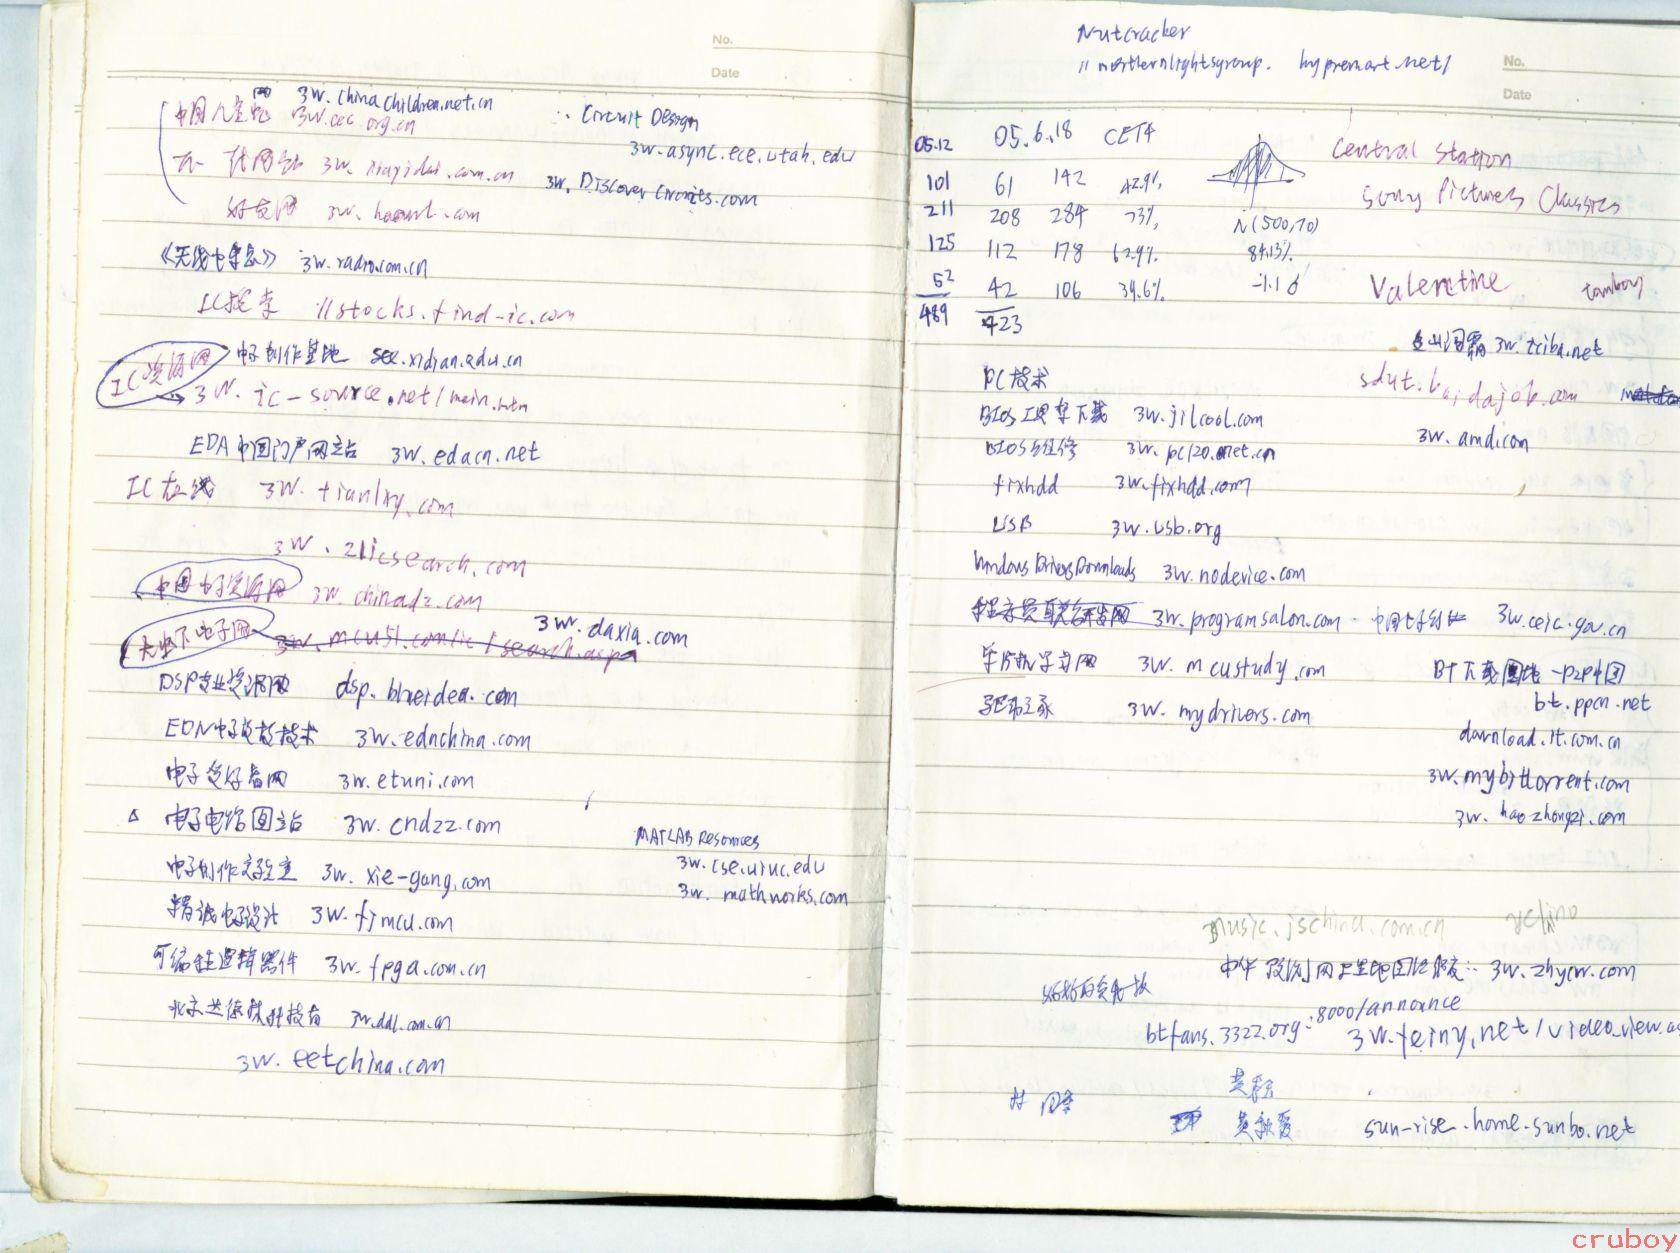 No.
Date
中国儿童网 3w.chinachildren.net.cn
3w.cec.org.cn
∴ Circuit Design
3w.async.ece.utah.edu
3w.Discovercircuits.com
好友网
《无线电杂志》 3w.radio.com.cn
IC搜索 //stocks.find-ic.com
IC资源网
电子创作基地 see.xidian.edu.cn
3w.ic-source.net/main.htm
EDA中国门户网站 3w.edacn.net
IC在线
3w.21icsearch.com
中国电子资源网 3w.chinadz.com
大虾电子网 3w.mcu51.com/ic/search.asp 3w.daxia.com
DSP专业资源网 dsp.blueidea.com
EDN电子设计技术 3w.ednchina.com
电子爱好者网 3w.etuni.com
△ 电子电路图站 3w.cndzz.com
MATLAB Resources
3w.cse.uiuc.edu
3w.mathworks.com
电子制作实验室 3w.xie-gang.com
精诚电子设计 3w.fjmcu.com
可编程逻辑器件 3w.fpga.com.cn
3w.ddl.com.cn
3w.eetchina.com
Nutcracker
//northernlightsgroup.hypremart.net/
No.
Date
05.12 05.6.18 CET4
101 61 142 42.9%
211 208 284 73%
125 112 178 62.9%
52 42 106 39.6%
489 423
N(500,70)
84.13%
-1.1σ
Central Station
Sony Pictures Classics
Valentine tomboy
金山词霸 3w.iciba.net
sdut.baidajob.com
3w.amd.com
PC技术
BIOS工具等下载 3w.jilcool.com
BIOS维修 3w.pc120.net.cn
fixhdd 3w.fixhdd.com
USB 3w.usb.org
Windows Drivers Downloads 3w.nodevice.com
程序员联合开发网 3w.programsalon.com
3w.ceic.gov.cn
单片机学习网 3w.mcustudy.com
驱动之家 3w.mydrivers.com
BT下载圈地-P2P中国
bt.ppcn.net
download.it.com.cn
3w.mybittorrent.com
3w.haozhongzi.com
music.jschina.com.cn
3w.zhycw.com
btfans.3322.org:8000/announce
3w.feiny.net/video_view.as
sun-rise.home.sunbo.net
cruboy